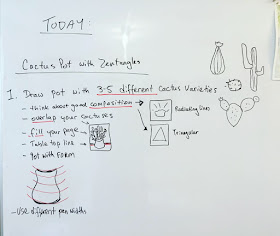 TODAY:
Cactus Pot with Zentangles
1. Draw pot with 3-5 different Cactus Varieties
- think about good composition
Radiating lines
- overlap your cactuses
- fill your page
Triangular
- Table top line
- Pot with Form
- Use different pen width